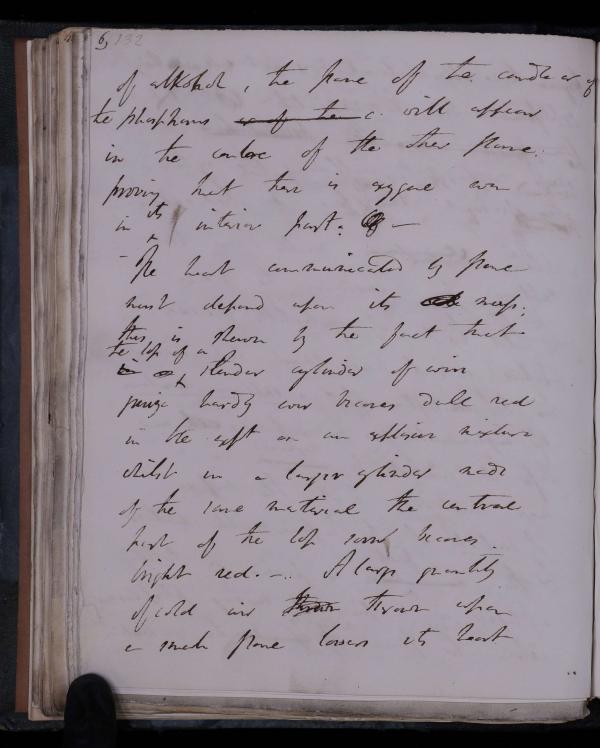 6, 132
of alkohol, the flame of the candle or of
the phosphorus will appear
in the centre of the other flame.
proving that there is oxygene even
in its interior part. —
- The heat communicated by flame
must depend upon its mass;
this is shewn by the fact that
the top of a slender cylinder of wire
gauze hardly ever becomes dull red
in the expt on an explosive mixture
whilst in a larger cylinder made
of the same material the central
part of the top soon becomes
bright red. -.. A large quantity
of cold air thrown upon
a small flame lowers its heat